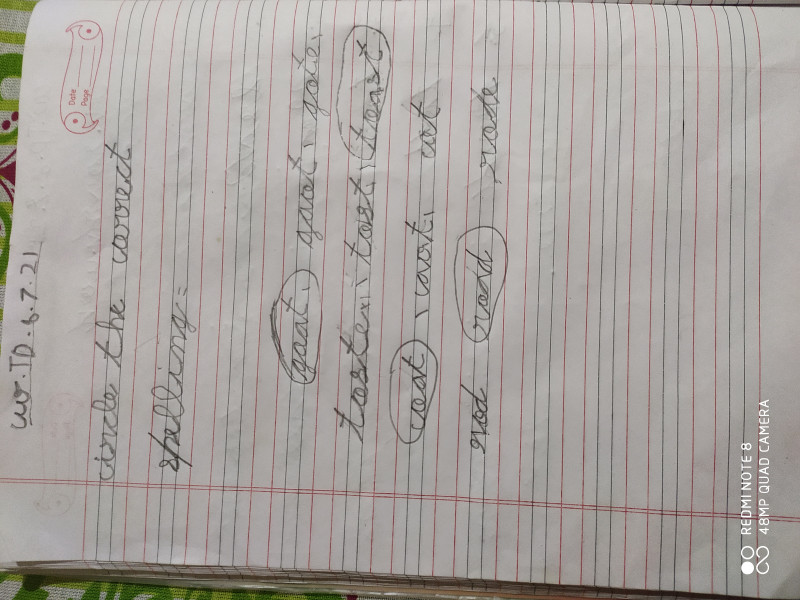 Date
Page
cw. TD. 6.7.21
circle the correct
spelling =
goat, gaot, gote,
toste, tost, toast
coat, caot, cot
rod road rode
REDMI NOTE 8
48MP QUAD CAMERA